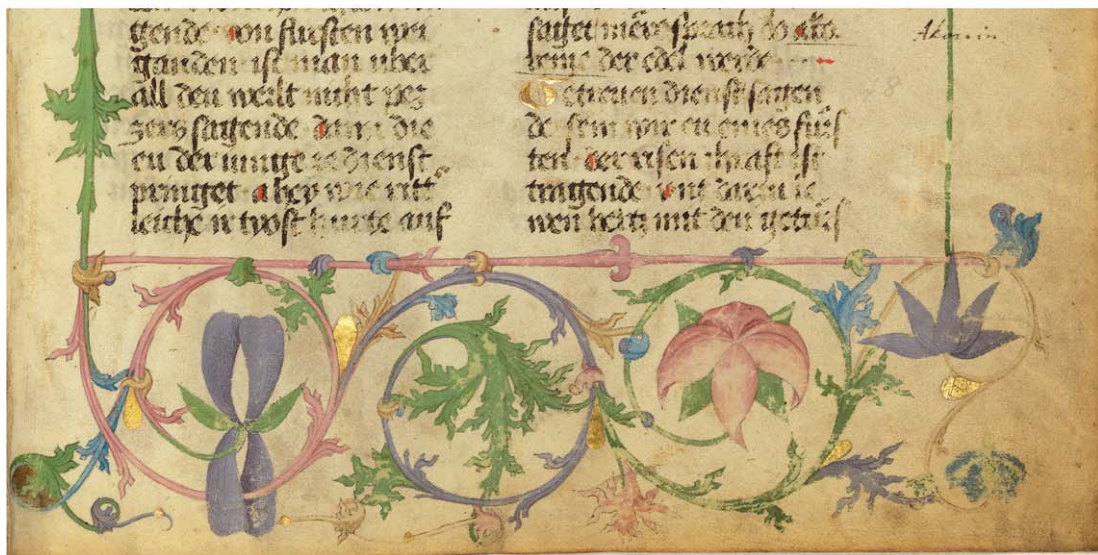 gende von fursten wei
ganden ist man uber
all den werlt nicht pez
zers sagende dann die
eu der ze dienst
pringet aber wie ritt
leiche er tyost hurte auf
saget mer sprach
der edel werde
Getreuen dienst sagen
de sein wir eu eines furs
ten der risen chraft ist
tragende vnt darzu le
wen hertz mit den geturs